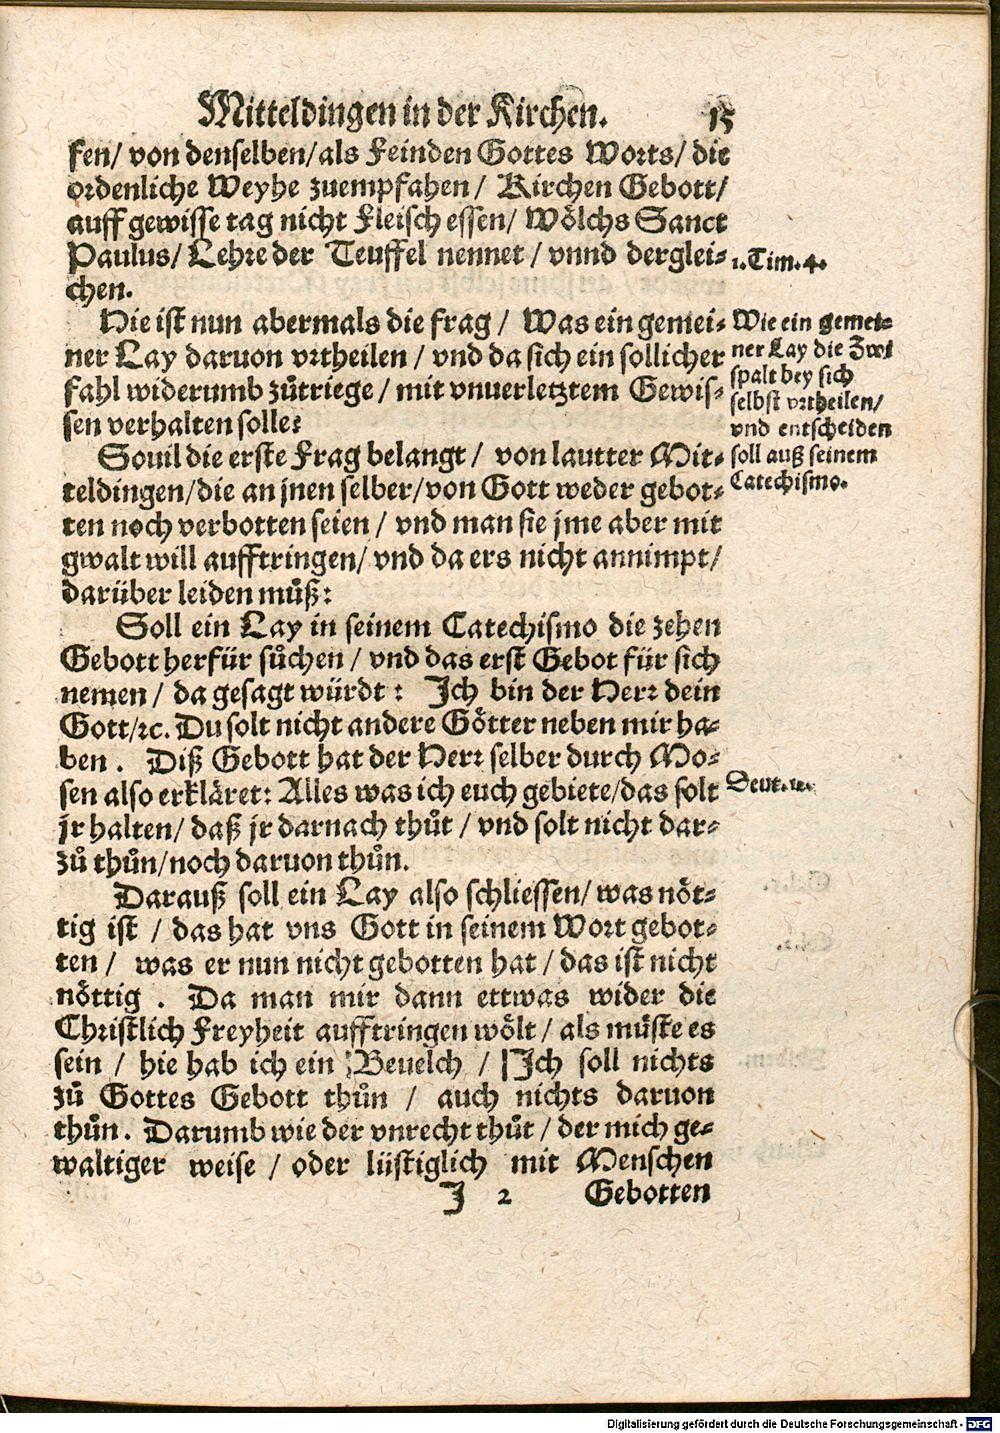 Mitteldingen in der Kirchen. 15
sen/ von denselben/ als Feinden Gottes Worts/ die
ordenliche Weyhe zuempfahen/ Kirchen Gebott/
auff gewisse tag nicht Fleisch essen/ Wölchs Sanct
Paulus/ Lehre der Teuffel nennet/ vnnd derglei-
chen.
1. Tim. 4.
Hie ist nun abermals die frag/ Was ein gemei-
ner Lay daruon vrtheilen/ vnd da sich ein sollicher
fahl widerumb zůtriege/ mit vnuerletztem Gewis-
sen verhalten solle?
Wie ein gemei-
ner Lay die Zwi
spalt bey sich
selbst vrtheilen/
vnd entscheiden
soll auß seinem
Catechismo.
Souil die erste Frag belangt/ von lautter Mit-
teldingen/ die an jnen selber/ von Gott weder gebot-
ten noch verbotten seien/ vnd man sie jme aber mit
gwalt will aufftringen/ vnd da ers nicht annimpt/
darüber leiden můß:
Soll ein Lay in seinem Catechismo die zehen
Gebott herfür sůchen/ vnd das erst Gebot für sich
nemen/ da gesagt würdt: Ich bin der Herr dein
Gott/ ꝛc. Du solt nicht andere Götter neben mir ha-
ben. Diß Gebott hat der Herr selber durch Mo-
sen also erkläret: Alles was ich euch gebiete/ das solt
jr halten/ daß jr darnach thůt/ vnd solt nicht dar-
zů thůn/ noch daruon thůn.
Deut.
Darauß soll ein Lay also schliessen/ was nöt-
tig ist/ das hat vns Gott in seinem Wort gebot-
ten/ was er nun nicht gebotten hat/ das ist nicht
nöttig. Da man mir dann ettwas wider die
Christlich Freyheit aufftringen wölt/ als müste es
sein/ hie hab ich ein Beuelch/ Ich soll nichts
zů Gottes Gebott thůn/ auch nichts daruon
thůn. Darumb wie der vnrecht thůt/ der mich ge-
waltiger weise/ oder lüstiglich mit Menschen
J 2 Gebotten
Digitalisierung gefördert durch die Deutsche Forschungsgemeinschaft - DFG